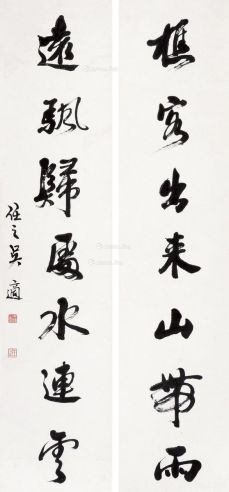 樵客出来山帶雨
遠颿歸處水連雲
任之吳適